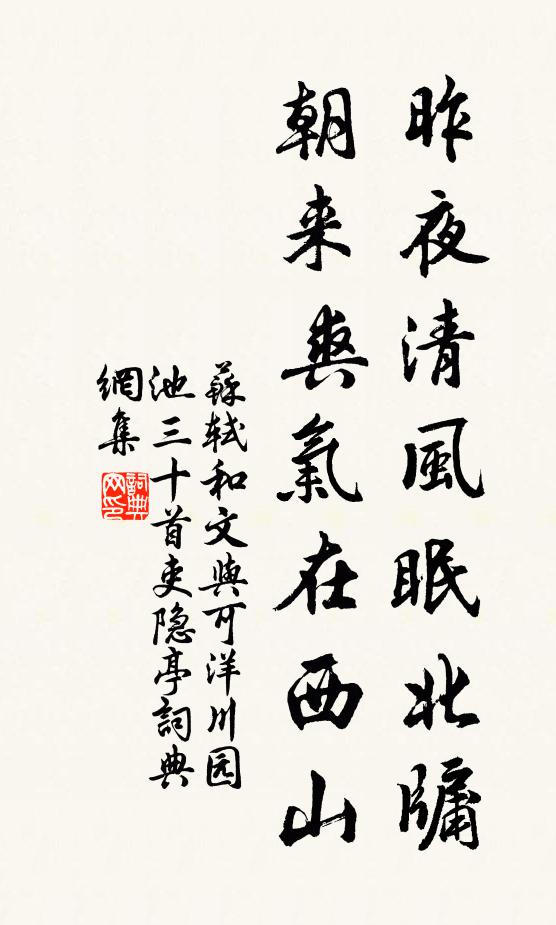 昨夜清風眠北牖
朝来爽氣在西山
蘇軾和文與可洋川园
池三十首吏隐亭詞典
網集
詞典
网印